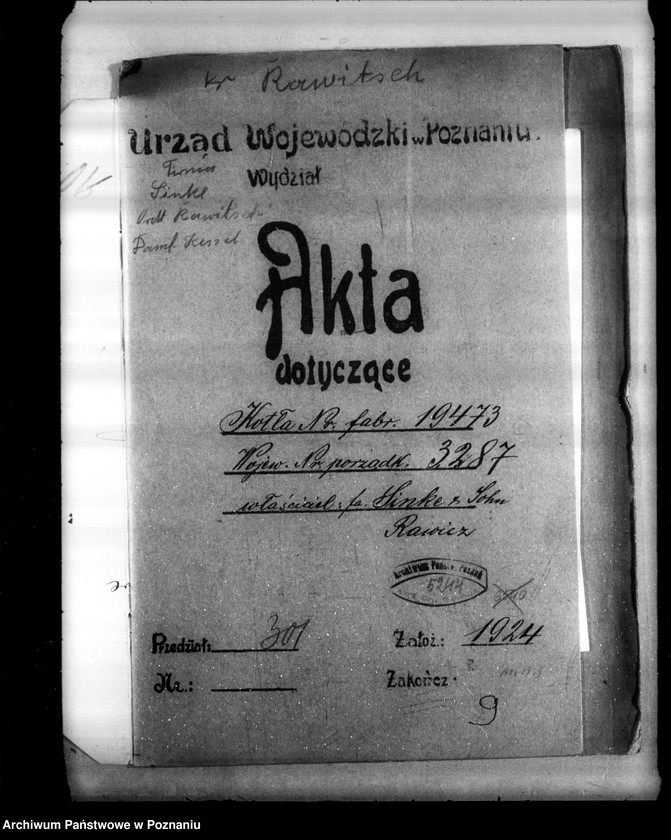 kr Rawitsch
Urząd Wojewódzki w Poznaniu.
Firma
Wydział
Linke
Rawitsch
Dampf Kessel
Akta
dotyczące
Kotła Nr. fabr. 19473
Wojew. Nr. porządk. 3287
właściciel: fa. Linke & Sohn
Rawicz
Archiwum Państw. Poznań
52/14
Przedział: 301
Założ.: 1924
Nr.:
Zakończ.
9
Archiwum Państwowe w Poznaniu